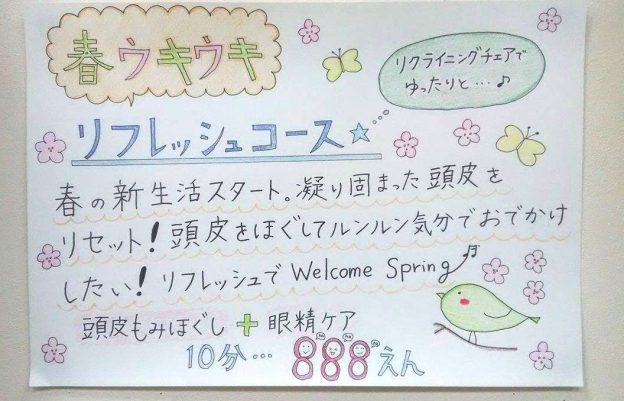 春ウキウキ
リクライニングチェアで
ゆったりと…♪
リフレッシュコース☆
春の新生活スタート。凝り固まった頭皮を
リセット！頭皮をほぐしてルンルン気分でおでかけ
したい！リフレッシュでWelcome Spring♬
頭皮もみほぐし＋眼精ケア
10分…888えん